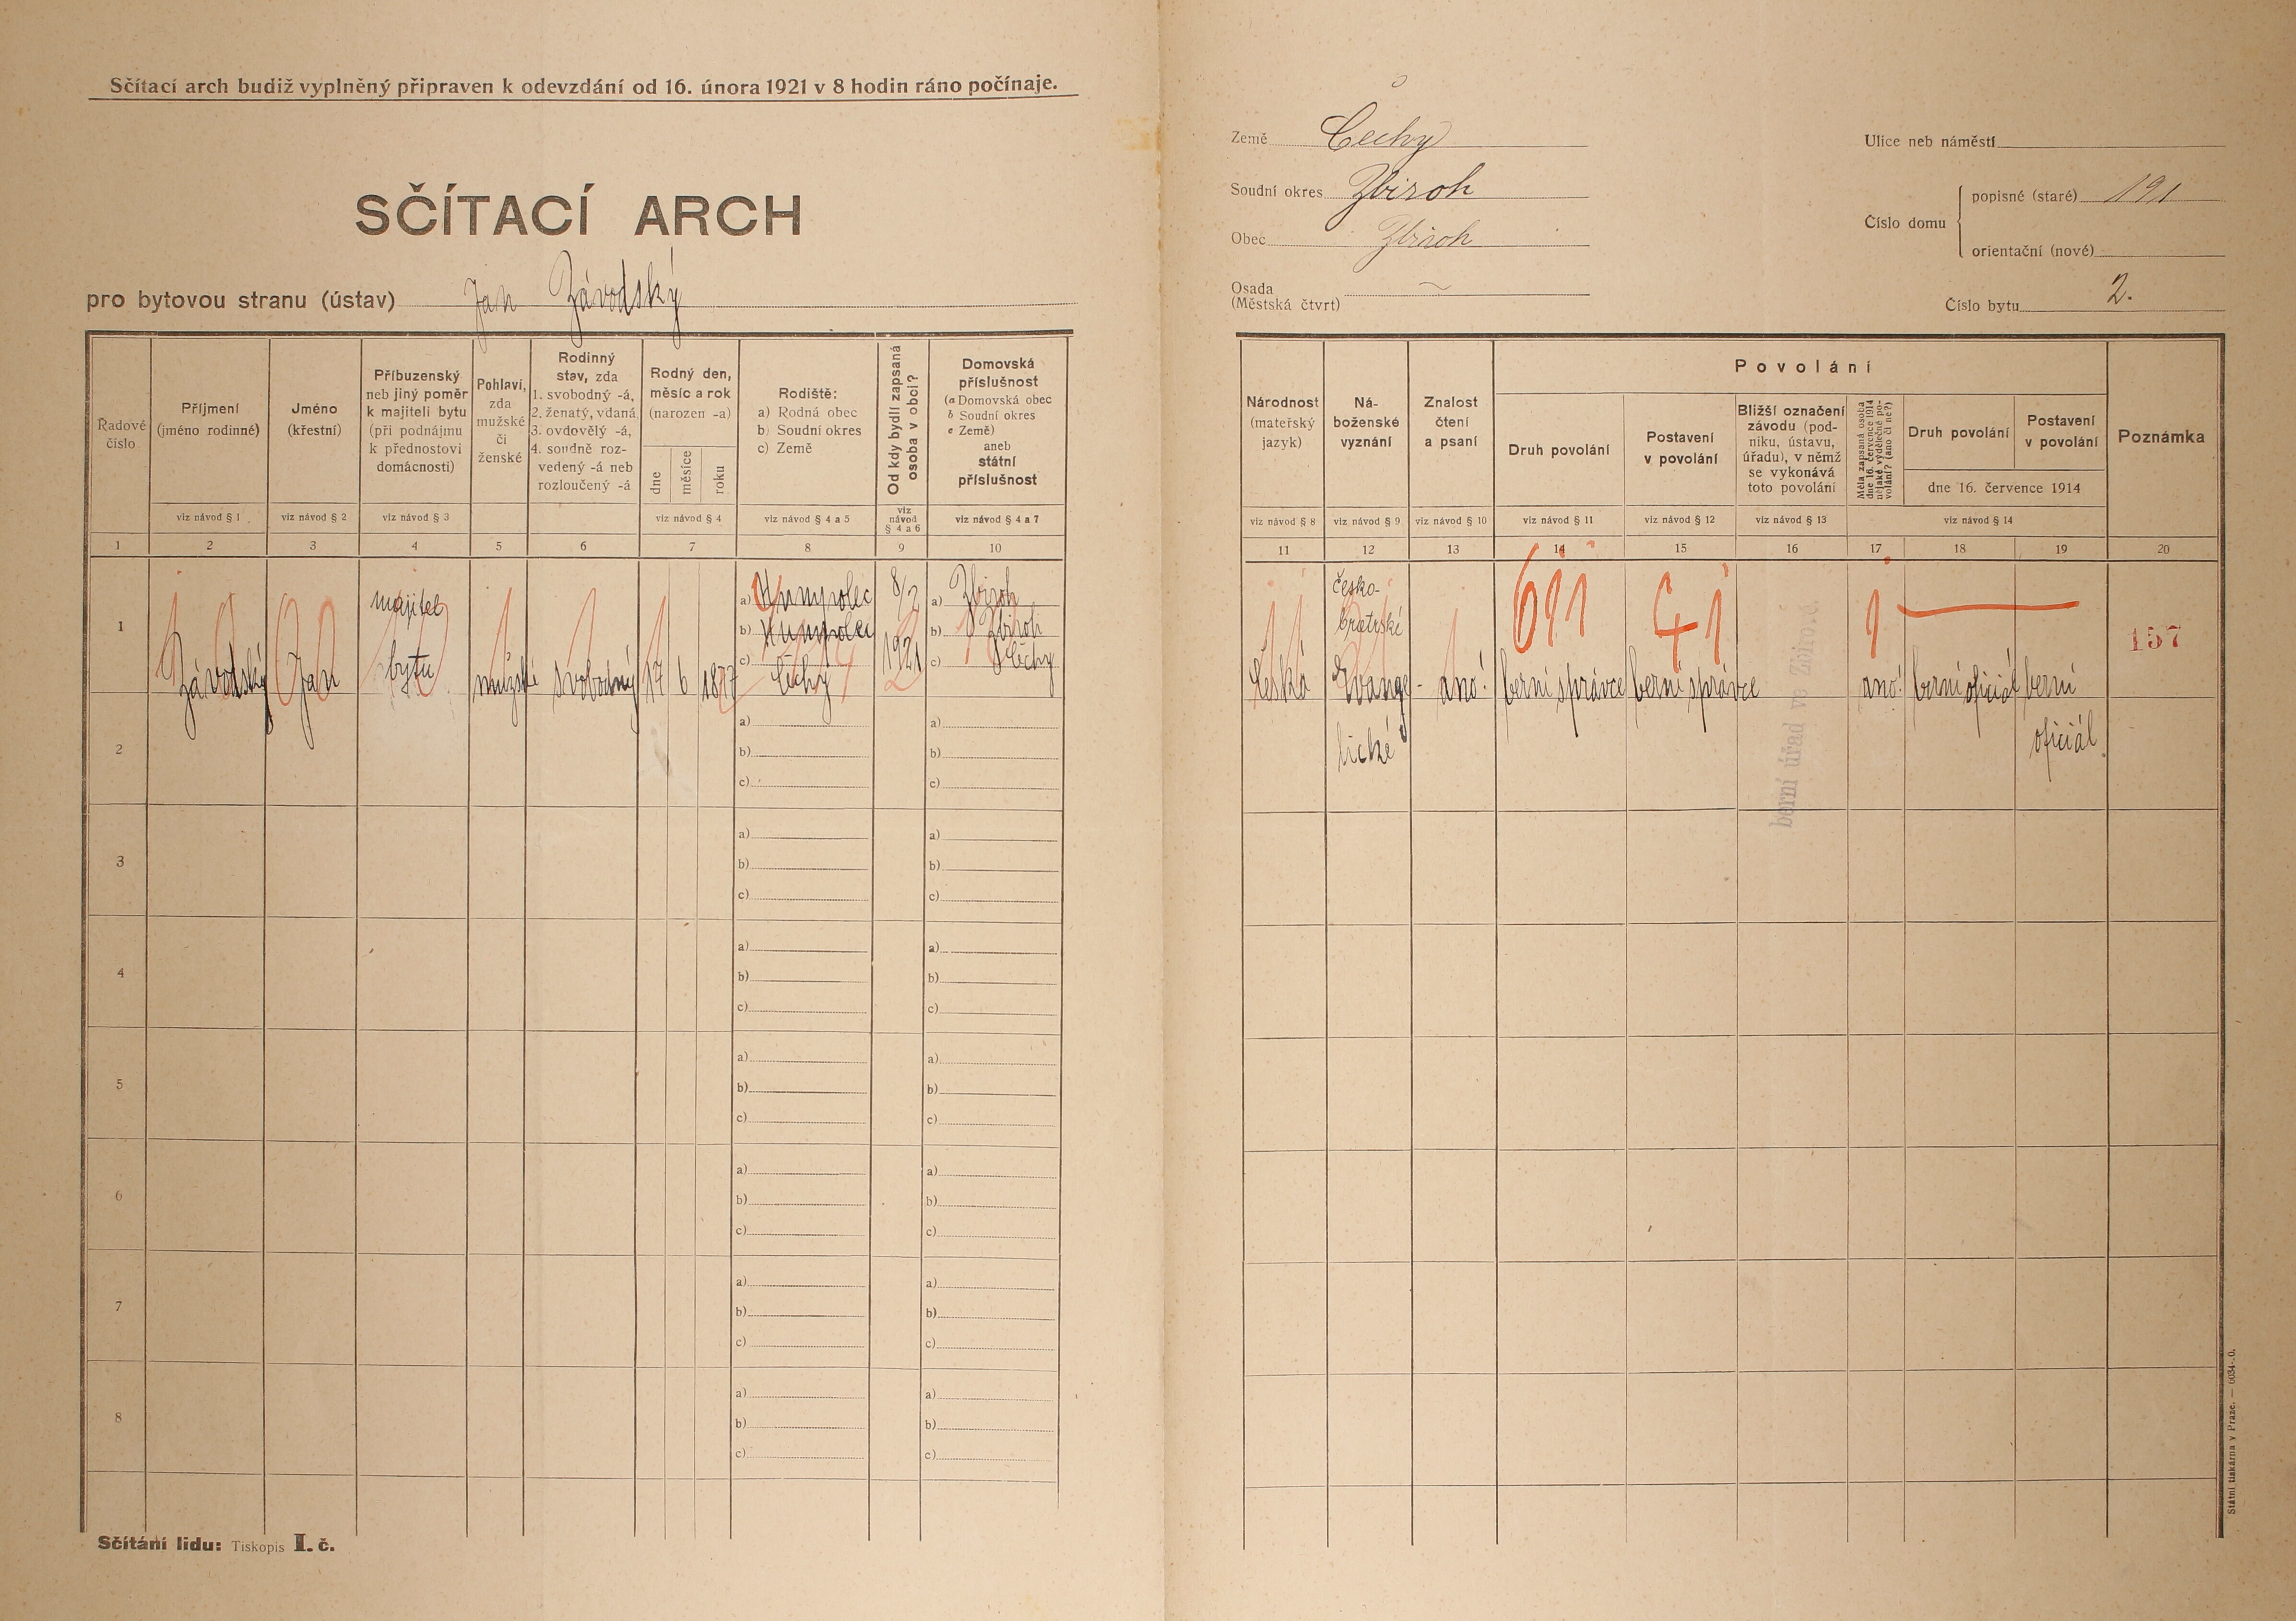 Sčítací arch budiž vyplněný připraven k odevzdání od 16. února 1921 v 8 hodin ráno počínaje.
SČÍTACÍ ARCH
pro bytovou stranu (ústav) Jan Závodský
Země Čechy
Soudní okres Zbiroh
Obec Zbiroh
Osada
(Městská čtvrt)
Ulice neb náměstí
Číslo domu
popisné (staré) 191
orientační (nové)
Číslo bytu 2.
Řadové
číslo
Příjmení
(jméno rodinné)
viz návod § 1
Jméno
(křestní)
viz návod § 2
Příbuzenský
neb jiný poměr
k majiteli bytu
(při podnájmu
k přednostovi
domácnosti)
viz návod § 3
Pohlaví,
zda
mužské
či
ženské
Rodinný
stav, zda
1. svobodný -á,
2. ženatý, vdaná
3. ovdovělý -á,
4. soudně roz-
vedený -á neb
rozloučený -á
Rodný den,
měsíc a rok
(narozen -a)
dne
měsíce
roku
viz návod § 4
Rodiště:
a) Rodná obec
b) Soudní okres
c) Země
viz návod § 4 a 5
Od kdy bydlí zapsaná
osoba v obci?
viz
návod
§ 4 a 6
Domovská
příslušnost
(a Domovská obec
b Soudní okres
c Země)
aneb
státní
příslušnost
viz návod § 4 a 7
Národnost
(mateřský
jazyk)
viz návod § 8
Ná-
boženské
vyznání
viz návod § 9
Znalost
čtení
a psaní
viz návod § 10
Povolání
Druh povolání
viz návod § 11
Postavení
v povolání
viz návod § 12
Bližší označení
závodu (pod-
niku, ústavu,
úřadu), v němž
se vykonává
toto povolání
viz návod § 13
Měla zapsaná osoba
dne 16. července 1914
nějaké výdělečné po-
volání? (ano či ne?)
Druh povolání
Postavení
v povolání
dne 16. července 1914
viz návod § 14
Poznámka
1 2 3 4 5 6 7 8 9 10 11 12 13 14 15 16 17 18 19 20
1
Závodský
Jan
majitel
bytu
mužské
svobodný
17 6 1877
a) Humpolec
b) Humpolec
c) Čechy
8/2
1921
a) Zbiroh
b) Zbiroh
c) Čechy
česká
česko-
bratrské
Evange-
lické
ano!
691
berní správce
41
berní správce
berní úřad ve Zbiro.č.
1
ano!
berní oficiál
berní
oficiál
157
2
a)
b)
c)
a)
b)
c)
3
a)
b)
c)
a)
b)
c)
4
a)
b)
c)
a)
b)
c)
5
a)
b)
c)
a)
b)
c)
6
a)
b)
c)
a)
b)
c)
7
a)
b)
c)
a)
b)
c)
8
a)
b)
c)
a)
b)
c)
Sčítání lidu: Tiskopis I. č.